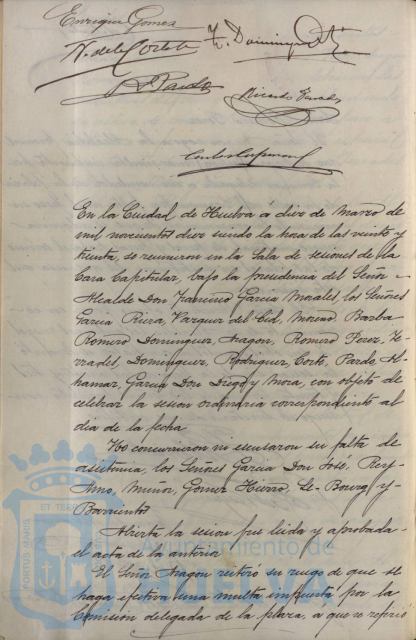 Enrique Gomez
N. de la Corte F. Dominguez
Pardo
Ricardo Terrades
En la Ciudad de Huelva á diez de Marzo de
mil novecientos diez siendo la hora de las veinte y
treinta, se reunieron en la Sala de sesiones de la
Casa Capitular, bajo la presidencia del Señor
Alcalde Don Francisco Garcia Morales, los Señores
Garcia Riera, Vazquez del Cid, Moreno Barba
Romero Dominguez, Aragon, Romero Perez, Te-
rrades, Dominguez, Rodriguez, Corte, Pardo, Al-
hamar, Garcia Don Diego y Mora, con objeto de
celebrar la sesion ordinaria correspondiente al
dia de la fecha
No concurrieron ni escusaron su falta de
asistencia, los Señores Garcia Don José, Rey-
Muñoz, Gomez Hierro, Le-Bourg y
Barrientos
Abierta la sesion fue leida y aprobada
el acta de la anterior
El Señor Aragon reiteró su ruego de que se
haga efectiva una multa impuesta por la
Comision delegada de la plaza, a que se refirió
PORTUS MARIS ET TERR
Ayuntamiento de
HUELVA